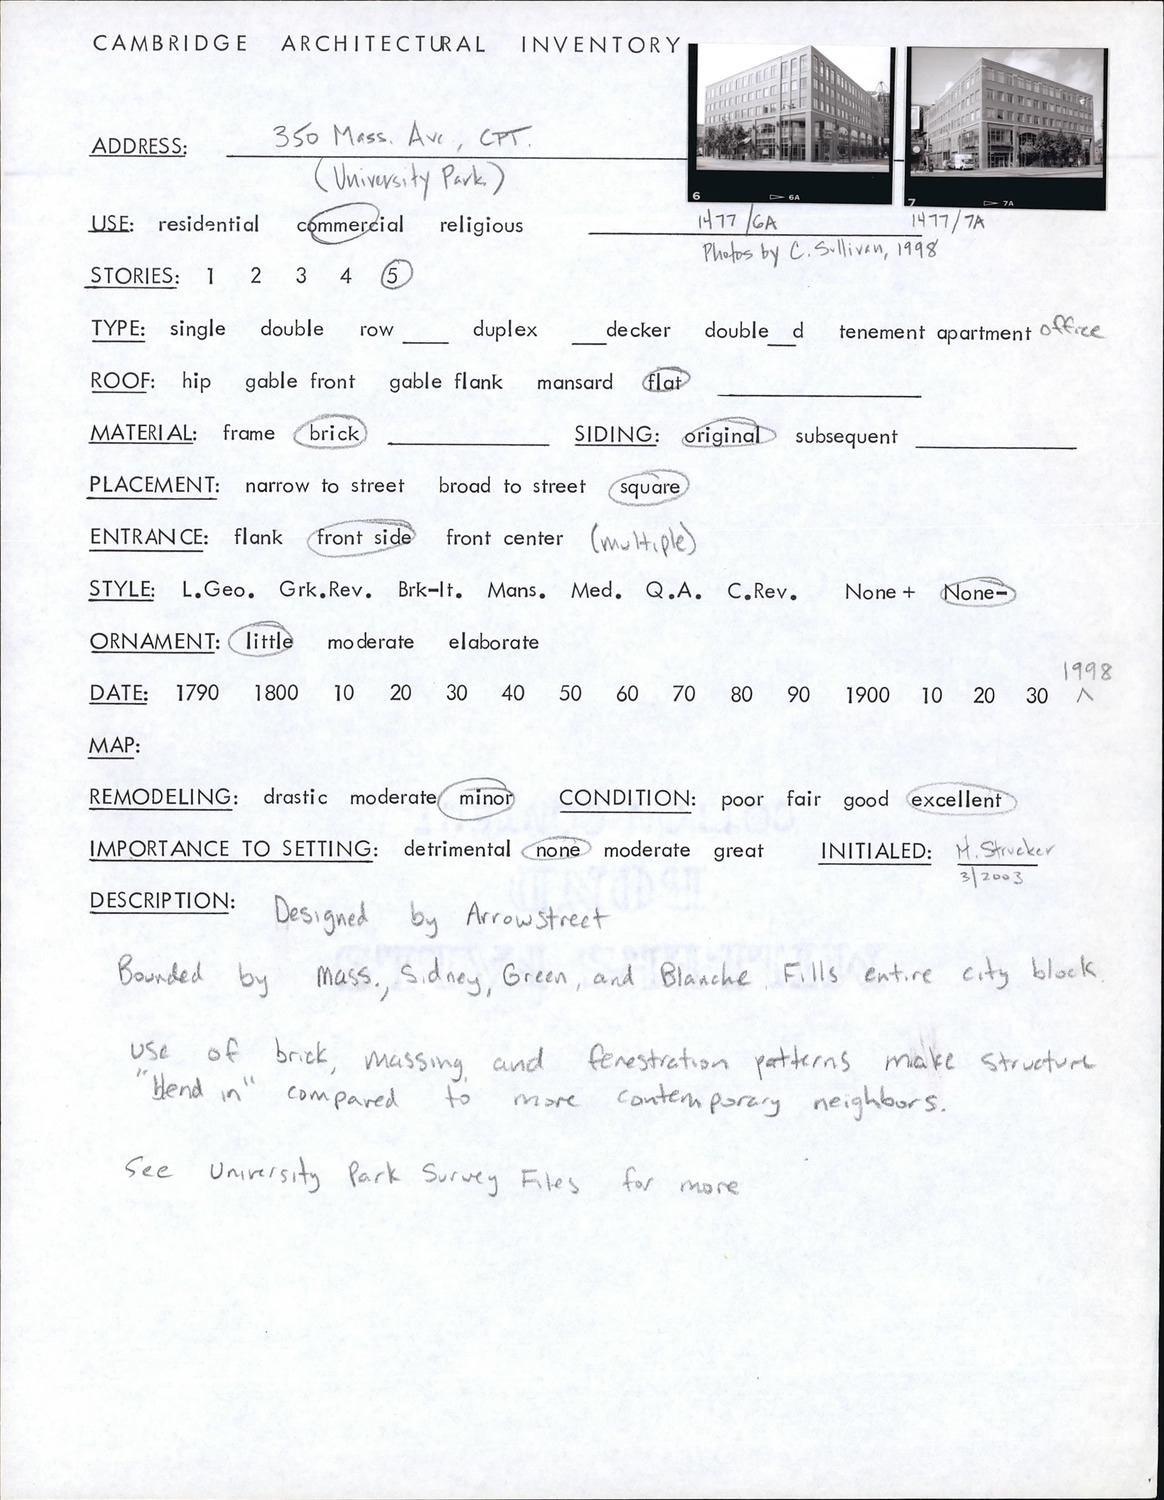 CAMBRIDGE ARCHITECTURAL INVENTORY
6 6A 7 7A
ADDRESS: 350 Mass. Ave, CPT.
(University Park)
1477/6A 1477/7A
USE: residential commercial religious
Photos by C. Sullivan, 1998
STORIES: 1 2 3 4 5
TYPE: single double row ___ duplex ___decker double__d tenement apartment office
ROOF: hip gable front gable flank mansard flat
MATERIAL: frame brick SIDING: original subsequent
PLACEMENT: narrow to street broad to street square
ENTRANCE: flank front side front center (multiple)
STYLE: L.Geo. Grk.Rev. Brk-It. Mans. Med. Q.A. C.Rev. None+ None-
ORNAMENT: little moderate elaborate
1998
DATE: 1790 1800 10 20 30 40 50 60 70 80 90 1900 10 20 30 ^
MAP:
REMODELING: drastic moderate minor CONDITION: poor fair good excellent
IMPORTANCE TO SETTING: detrimental none moderate great INITIALED: H. Strucker
3/2003
DESCRIPTION: Designed by Arrowstreet
Bounded by Mass., Sidney, Green, and Blanche. Fills entire city block.
Use of brick, massing, and fenestration patterns make structure
"blend in" compared to more contemporary neighbors.
See University Park Survey Files for more